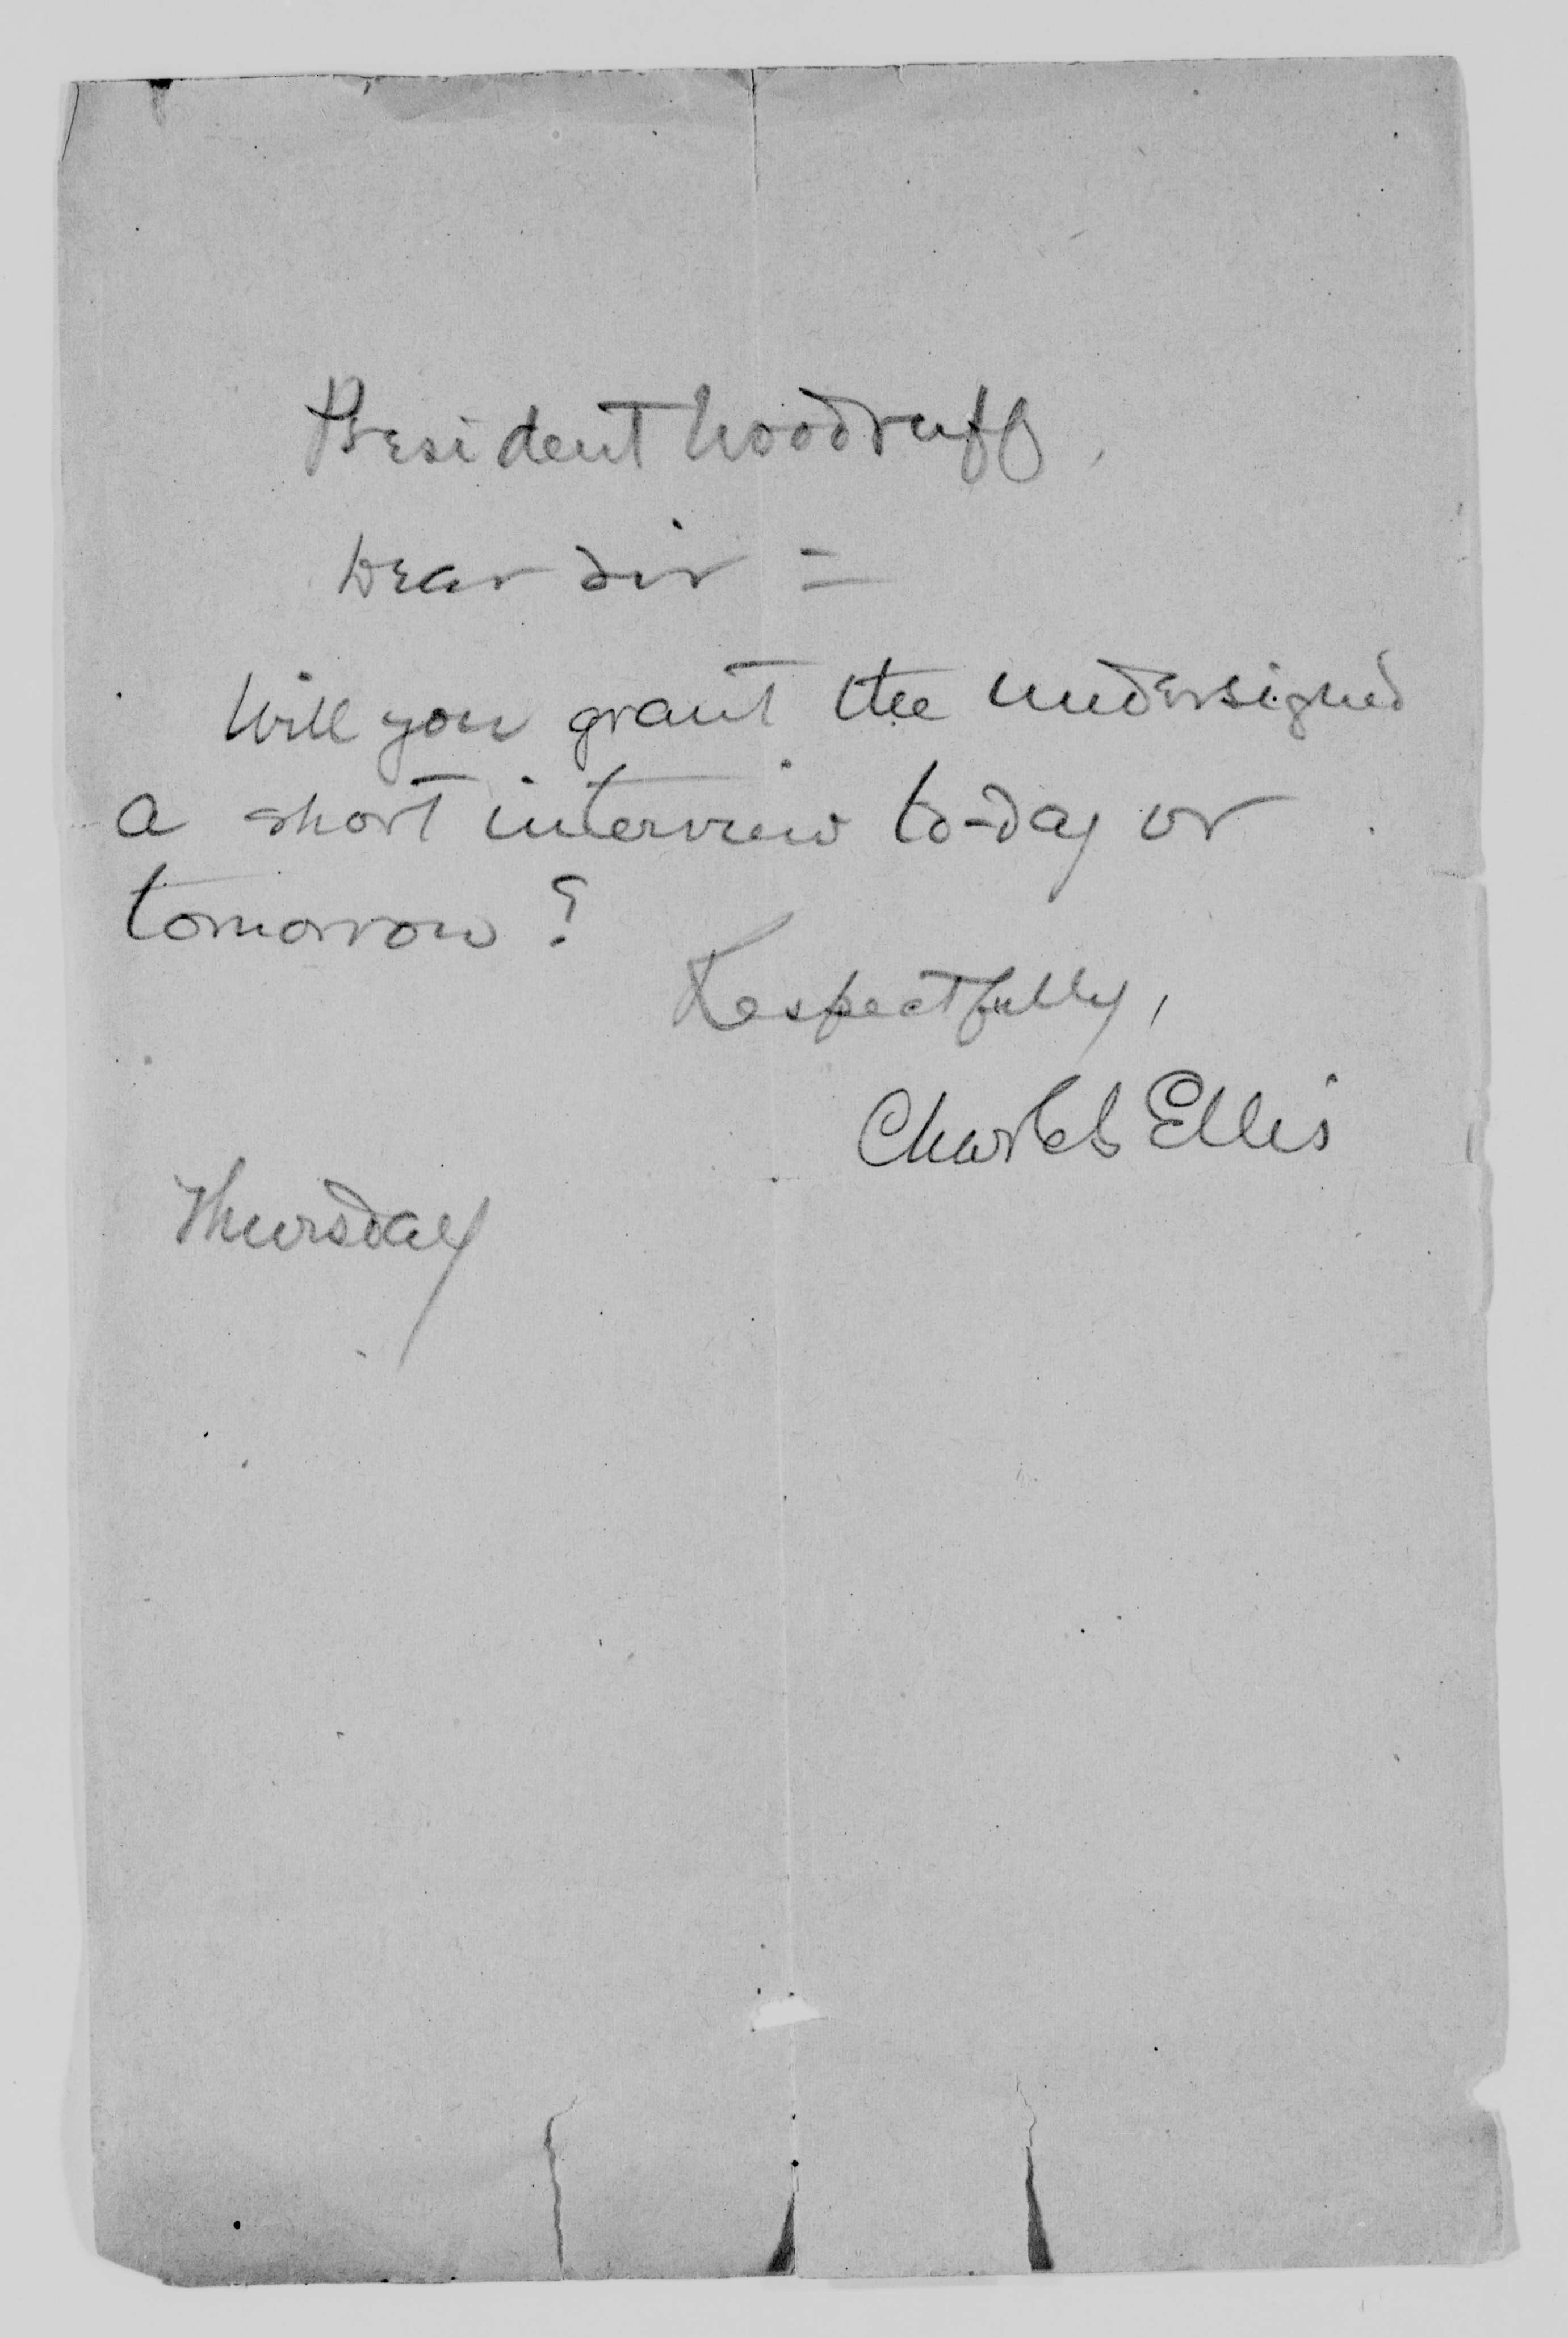 President Woodruff,
Dear Sir =
Will you grant the undersigned
a short interview to-day or
tomorrow?
Respectfully,
Charles Ellis
Thursday